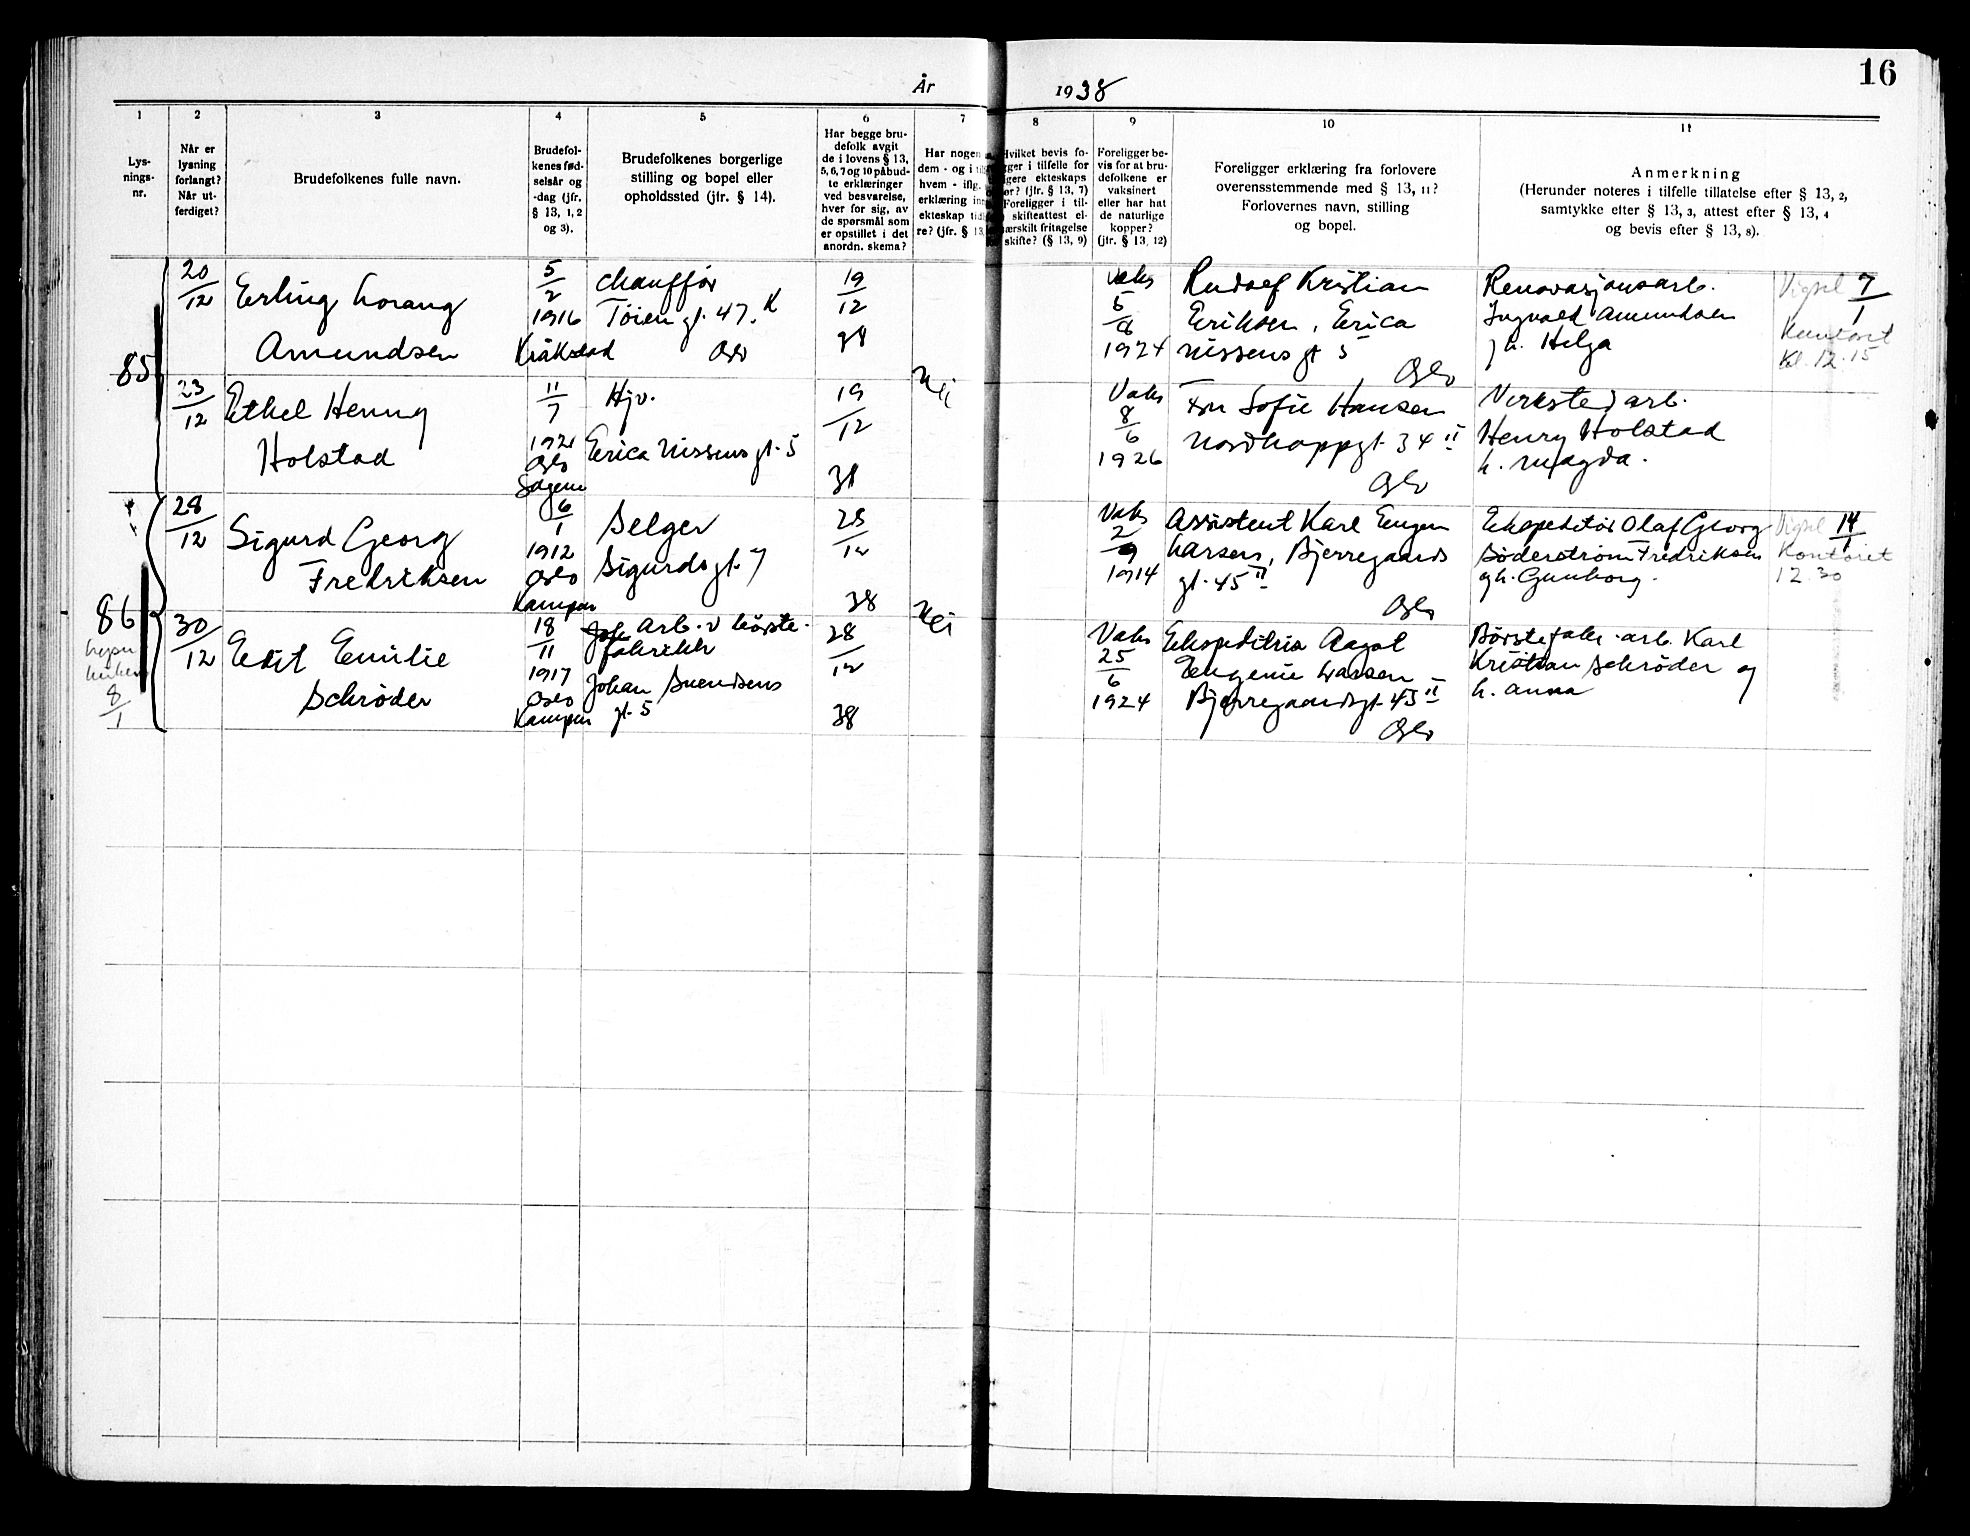 År 1938
16
1
Lys-
nings-
nr.
2
Når er
lysning
forlangt?
Når ut-
ferdiget?
3
Brudefolkenes fulle navn.
4
Brudefol-
kenes fød-
selsår og
-dag (jfr.
§ 13, 1, 2
og 3).
5
Brudefolkenes borgerlige
stilling og bopel eller
opholdssted (jfr. § 14).
6
Har begge bru-
defolk avgit
de i lovens § 13,
5, 6, 7 og 10 påbud-
te erklæringer
ved besvarelse,
hver for sig, av
de spørsmål som
er opstillet i det
anordn. skema?
7
Har nogen
dem - og i
hvem - iflg.
erklæring
ekteskap
re? (jfr. § 13,
8
Hvilket bevis fo-
gger i tilfelle for
gere ekteskaps
or? (jfr. § 13, 7)
Foreligger i til-
skifteattest el-
ærskilt fritagelse
skifte? (§ 13, 9)
9
Foreligger be-
vis for at bru-
defolkene er
vaksinert
eller har hat
de naturlige
kopper?
(jfr. § 13, 12)
10
Foreligger erklæring fra forlovere
overensstemmende med § 13, 11?
Forlovernes navn, stilling
og bopel.
11
Anmerkning
(Herunder noteres i tilfelle tillatelse efter § 13, 2,
samtykke efter § 13, 3, attest efter § 13, 4
og bevis efter § 13, 8).
85
20/12
Erling Lorang
Amundsen
5/2
1916
Kråkstad
chauffør
Tøien gt. 47. K
Oslo
19/12
38
Nei
Vaks
5/8
1924
Rudolf Kristian
Eriksen, Erica
Nissens gt 5
Oslo
Renovasjonsarb.
Ingvald Amundsen
g h. Helga
Vigsel 7/1
Kontoret
Kl. 12.15
23/12
Ethel Henny
Holstad
11/7
1921
Oslo
Sagene
Hjv.
Erica Nissens gt. 5
19/12
38
Vaks
8/6
1926
Fru Sofie Hansen
Nordkappgt. 34 II
Oslo
Verksted arb.
Henry Holstad
h. Magda.
86
28/12
Sigurd Georg
Fredriksen
6/1
1912
Oslo
Kampen
Selger
Sigurds gt. 7
28/12
38
Nei
Vaks
2/9
1914
Assistent Karl Eugen
Larsen, Bjerregaards
gt. 45 II
Oslo
Ekspeditør Olaf Georg
Søderstrøm Fredriksen
g h. Gunborg.
Vigsel 14/1
Kontoret
12.30
8/1
30/12
Edit Emilie
Schrøder
18/11
1917
Oslo
Kampen
Arb. v børste-
fabrikk
Johan Svendsens
gt. 5
28/12
38
Vaks
25/6
1924
Ekspeditrise Aagot
Eugenie Larsen
Bjerregaardsgt. 45 II
Oslo
Børstefabr. arb. Karl
Kristian Schrøder og
h. Anna